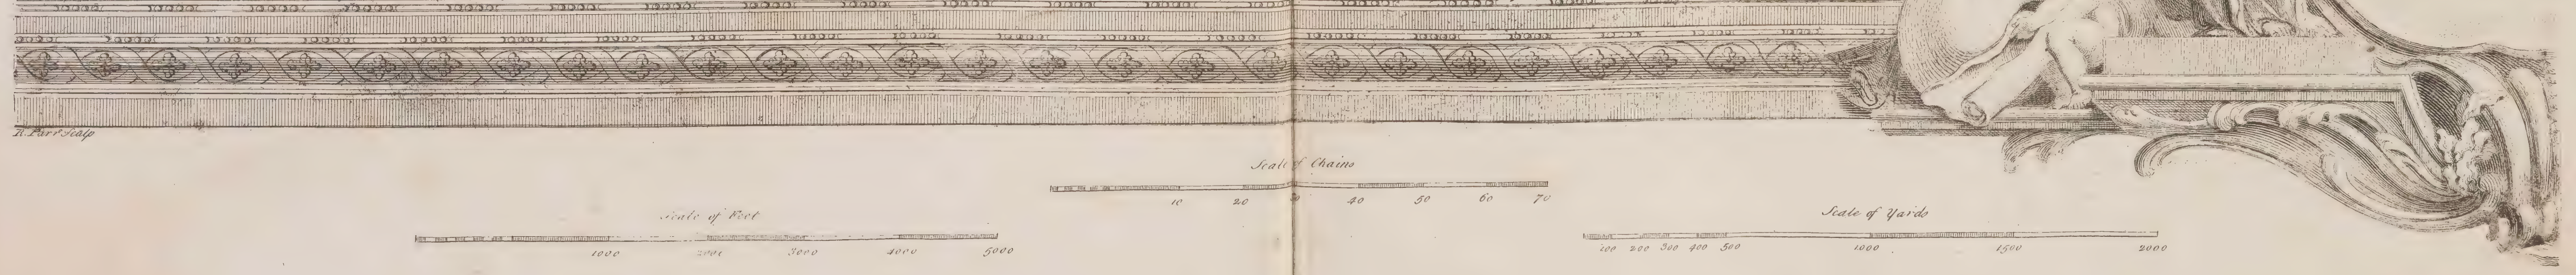 R. Parr Sculp
Scale of Chains
10 20 30 40 50 60 70
Scale of Feet
1000 2000 3000 4000 5000
Scale of Yards
100 200 300 400 500 1000 1500 2000